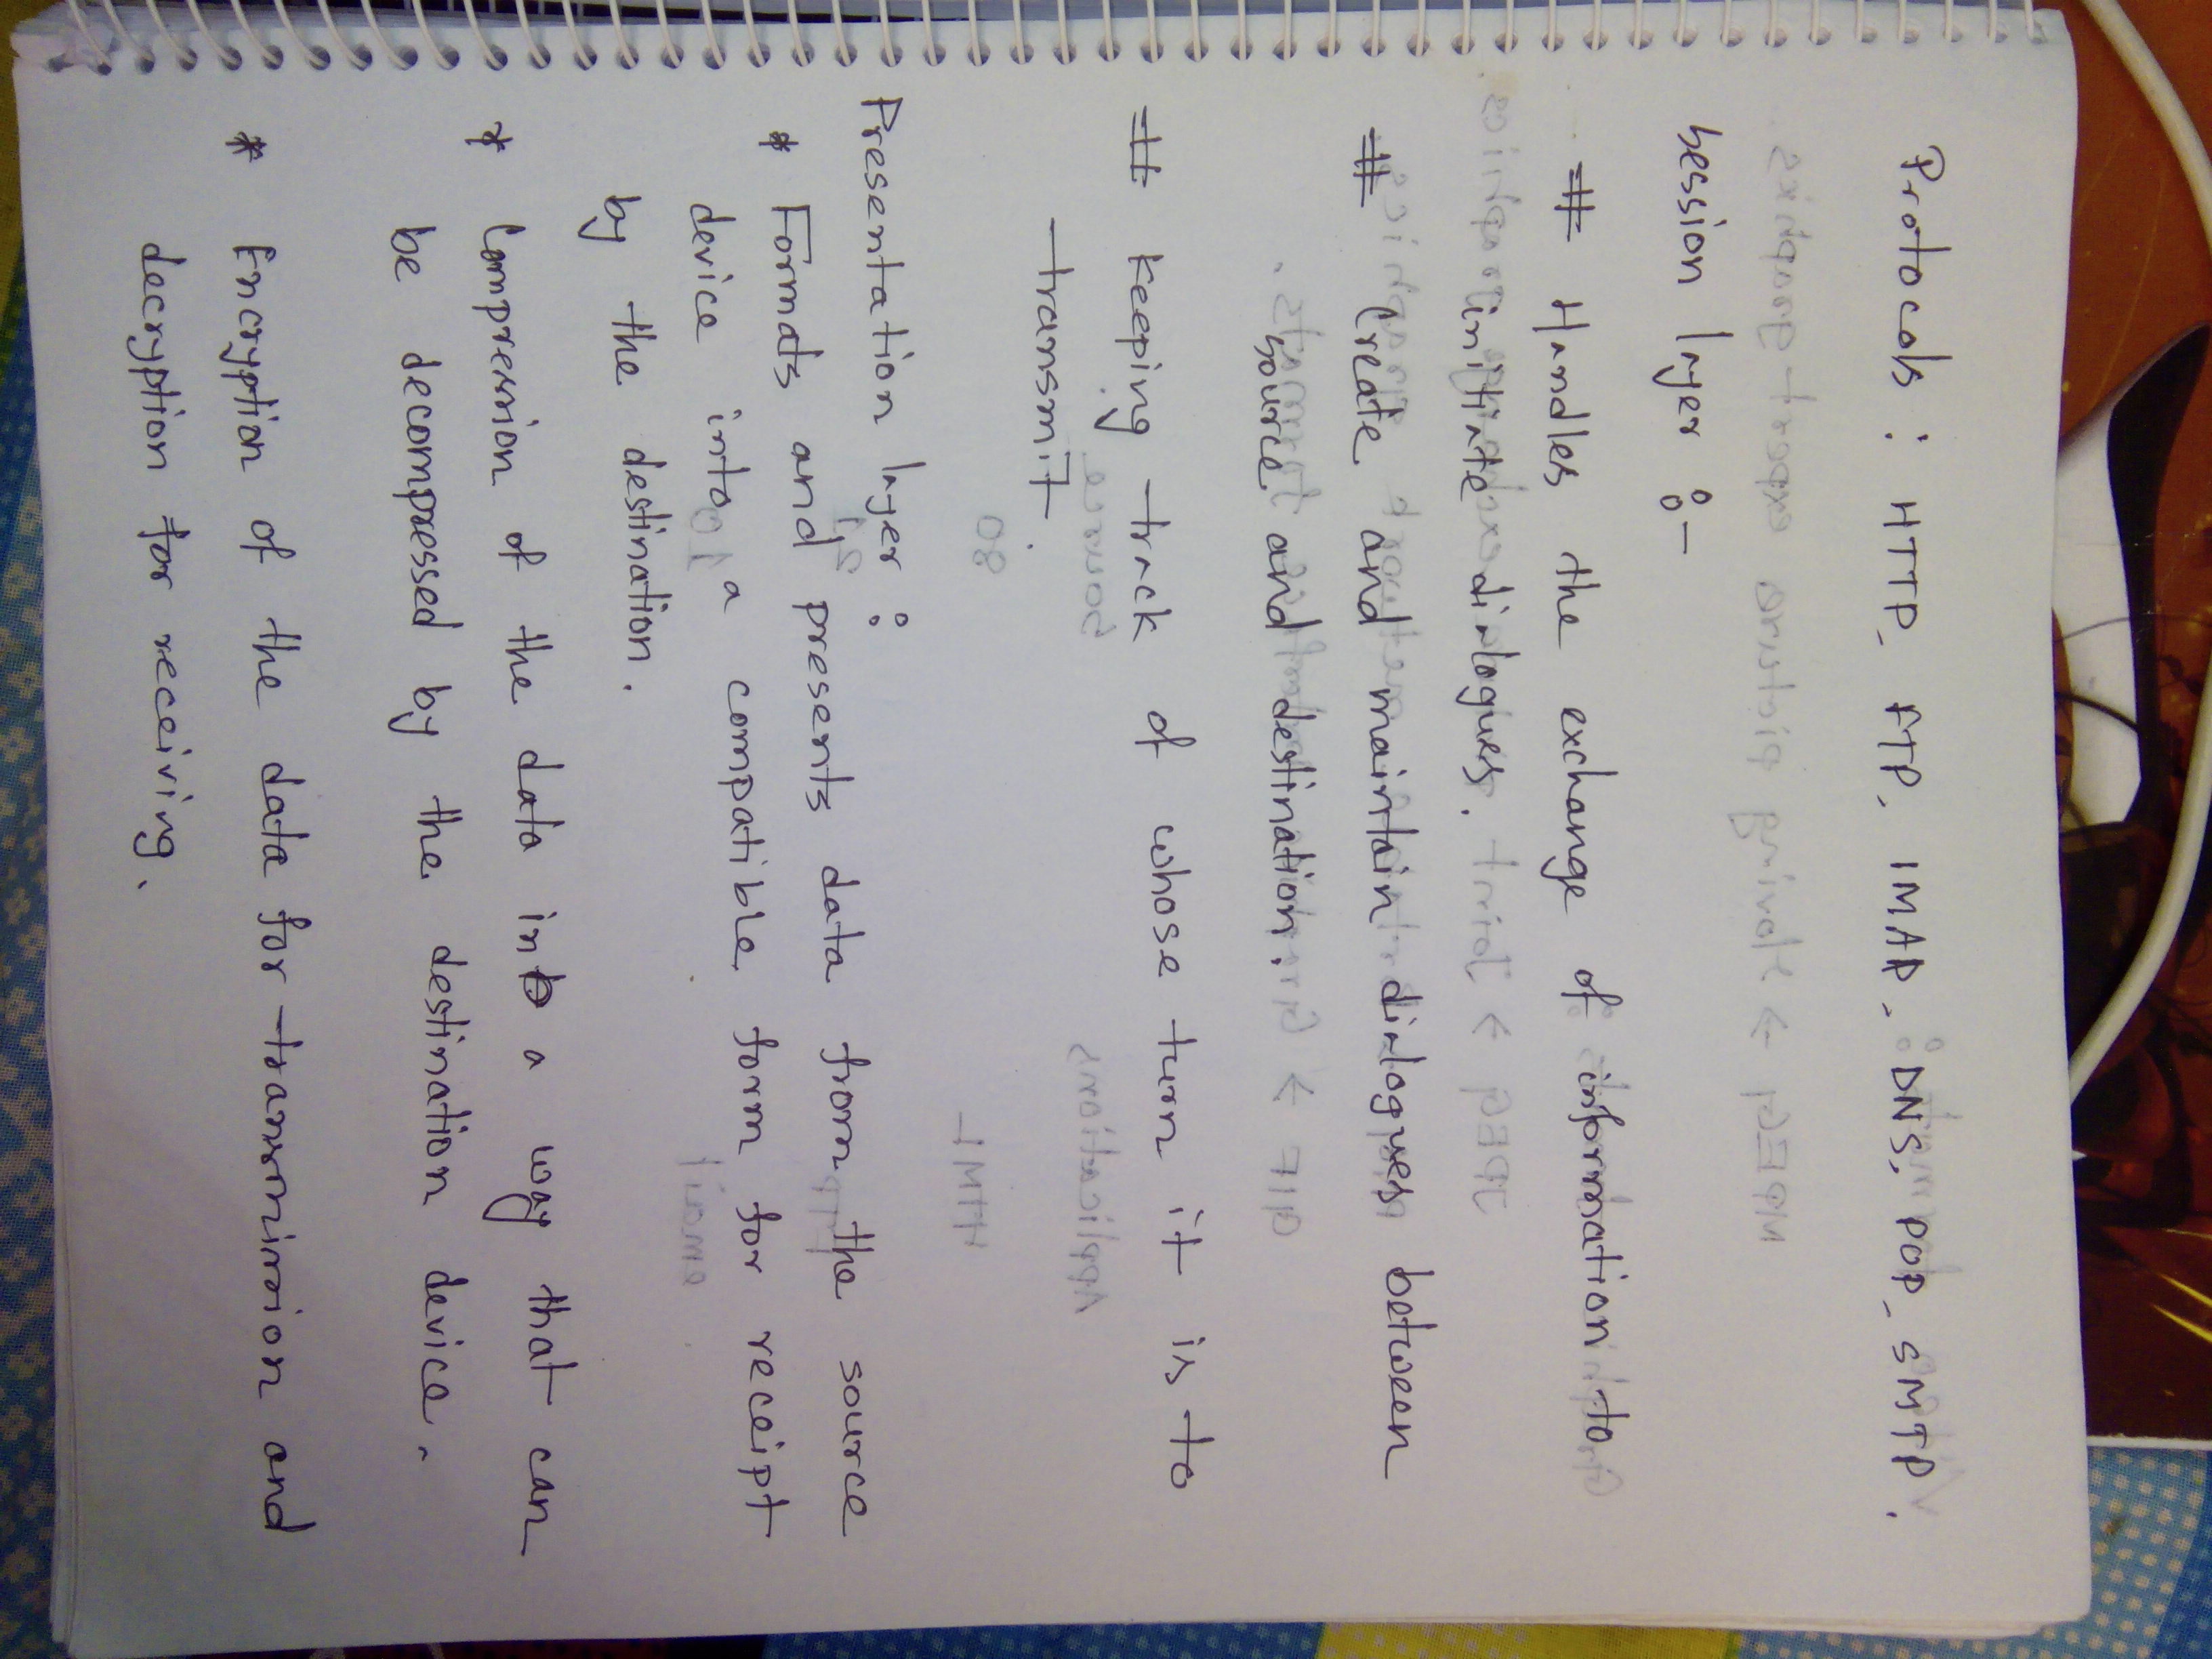 Protocols : HTTP, FTP, IMAP, DNS, POP, SMTP.
Session layer :-
# Handles the exchange of information to
initiate dialogues.
# Create and maintain dialogues between
source and destination.
# Keeping track of whose turn it is to
transmit.
Presentation layer :
* Formats and presents data from the source
device into a compatible form for receipt
by the destination.
* Compression of the data into a way that can
be decompressed by the destination device.
* Encryption of the data for transmission and
decryption for receiving.